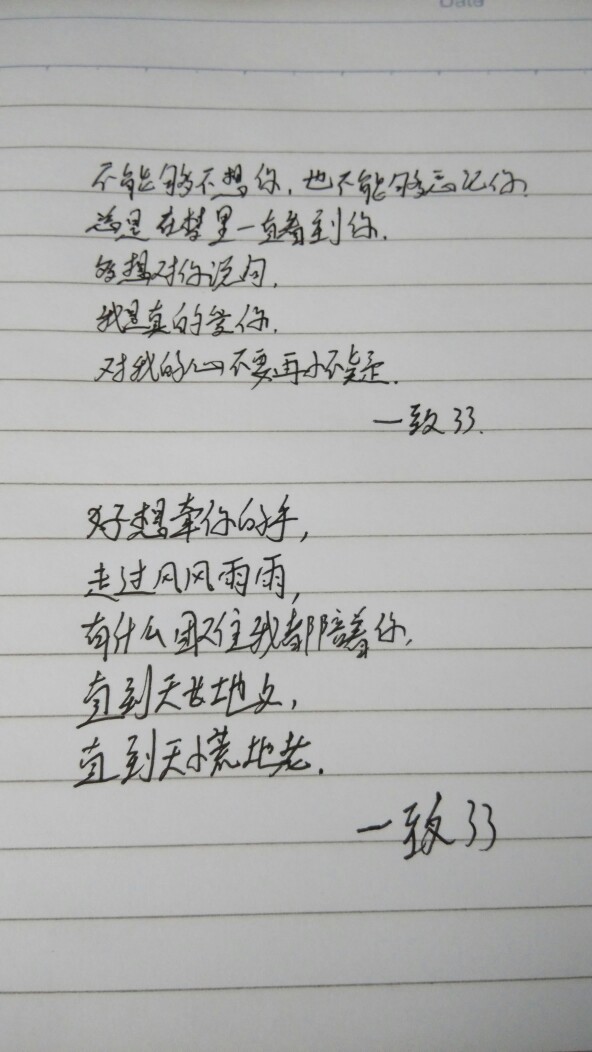 Data
不能够不想你,也不能够忘记你.
总是在梦里一直看到你.
好想对你说句,
我是真的爱你.
对我的心不要再怀疑.
一致33.
好想牵你的手,
走过风风雨雨,
有什么困难我都陪着你,
直到天长地久,
直到天荒地老.
一致33